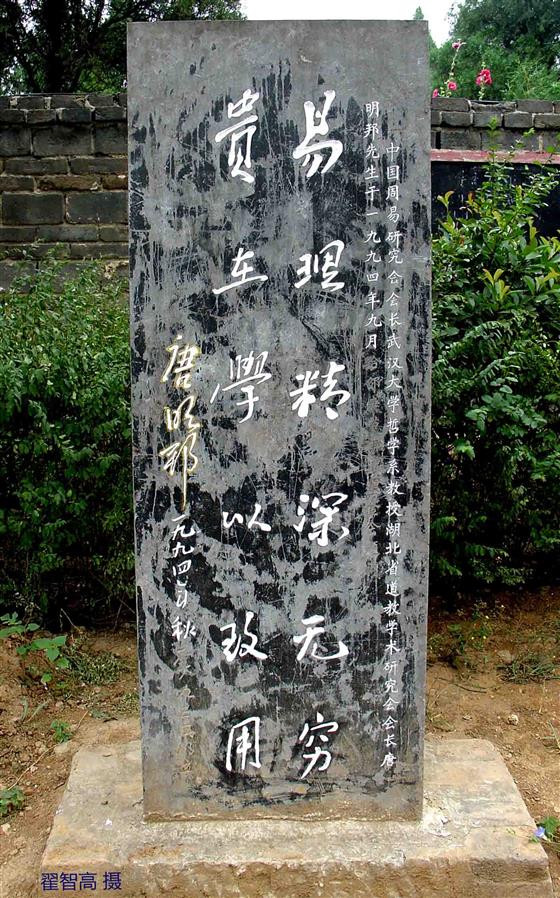 中国周易研究会会长武汉大学哲学系教授湖北省道教学术研究会会长唐
明邦先生于一九九四年九月
易理精深无穷
贵在学以致用
唐明邦
一九九四年秋
翟智高 摄